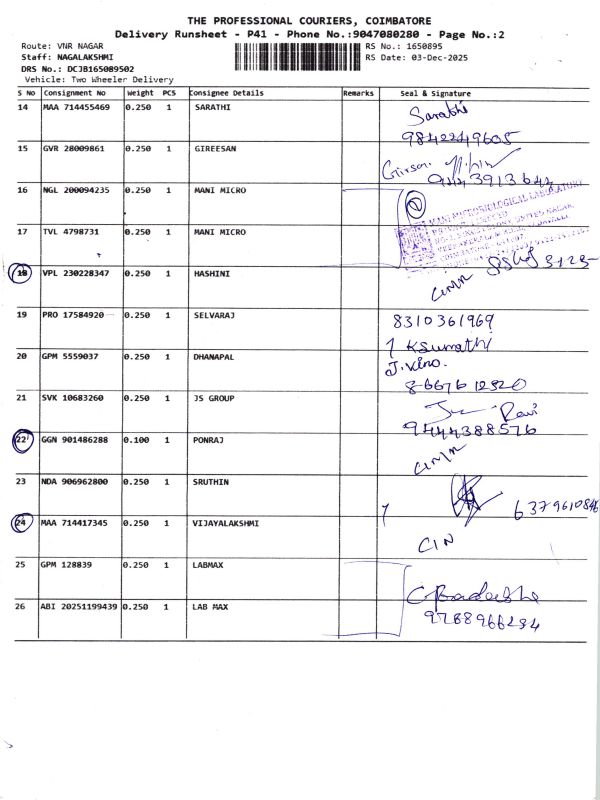 THE PROFESSIONAL COURIERS, COIMBATORE
Delivery Runsheet - P41 - Phone No.:9047080280 - Page No.:2
Route: VNR NAGAR
RS No.: 1650895
Staff: NAGALAKSHMI
RS Date: 03-Dec-2025
DRS No.: DCJB165089502
Vehicle: Two Wheeler Delivery
S No Consignment No Weight PCS Consignee Details Remarks Seal & Signature
14 MAA 714455469 0.250 1 SARATHI Sarathi
9842249605
15 GVR 28009861 0.250 1 GIREESAN
16 NGL 200094235 0.250 1 MANI MICRO
17 TVL 4798731 0.250 1 MANI MICRO
18 VPL 230228347 0.250 1 HASHINI
19 PRO 17584920 0.250 1 SELVARAJ 8310361969
20 GPM 5559037 0.250 1 DHANAPAL J.Vino.
21 SVK 10683260 0.250 1 JS GROUP Ravi
9444388576
22 GGN 901486288 0.100 1 PONRAJ
23 NDA 906962800 0.250 1 SRUTHIN
24 MAA 714417345 0.250 1 VIJAYALAKSHMI CIN
25 GPM 128839 0.250 1 LABMAX
26 ABI 20251199439 0.250 1 LAB MAX 9788966234